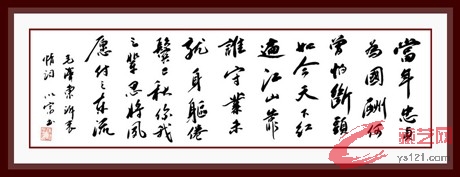 當年忠貞
為國酬何
曾怕斷頭
如今天下红
遍江山靠
誰守業未
就身軀倦
鬓已秋你我
之輩忍將夙
愿付之东流
毛澤東訴衷
情词
艺网
ys121.com